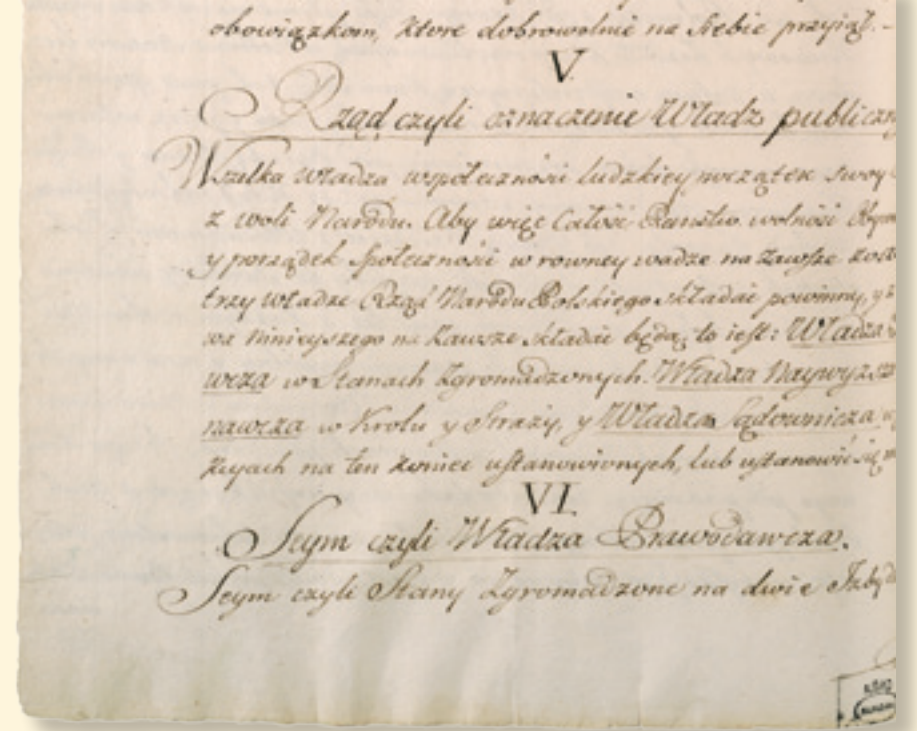 obowiązkom, które dobrowolnie na siebie przyiął.-
V.
Rząd czyli oznaczenie Władz publiczny
Wszelka władza społeczności ludzkiey początek swoy
z woli Narodu. Aby więc Całość Państw wolność Obyw
y porządek społeczności w rowney wadze na zawsze zost
trzy władze Rząd Narodu Polskiego składać powinny, y z
wa ninieyszego na zawsze składać będą, to iest: Władza
wcza w Stanach Zgromadzonych. Władza Naywyższa
nawcza w Krolu y Straży, y Władza Sądownicza w
zcyach na ten koniec ustanowionych, lub ustanowić się
VI.
Seym czyli Władza Prawodawcza.
Seym czyli Stany Zgromadzone na dwie Izby